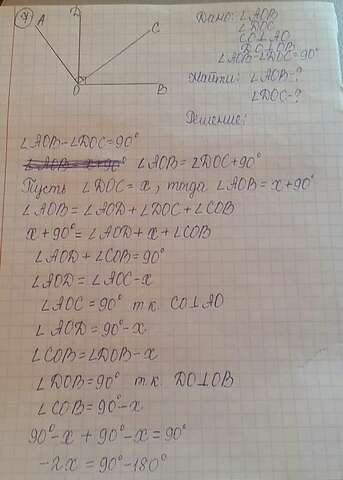 4
A
D
C
O
B
Дано: ∠AOB
∠DOC
CO⊥AO
DO⊥OB
∠AOB-∠DOC=90°
Найти: ∠AOB-?
∠DOC-?
Решение:
∠AOB-∠DOC=90°
∠AOB = x+90° ∠AOB=∠DOC+90°
Пусть ∠DOC=x, тогда ∠AOB=x+90°
∠AOB=∠AOD+∠DOC+∠COB
x+90°=∠AOD+x+∠COB
∠AOD+∠COB=90°
∠AOD=∠AOC-x
∠AOC=90° т.к. CO⊥AO
∠AOD=90°-x
∠COB=∠DOB-x
∠DOB=90° т.к. DO⊥OB
∠COB=90°-x
90°-x+90°-x=90°
-2x=90°-180°